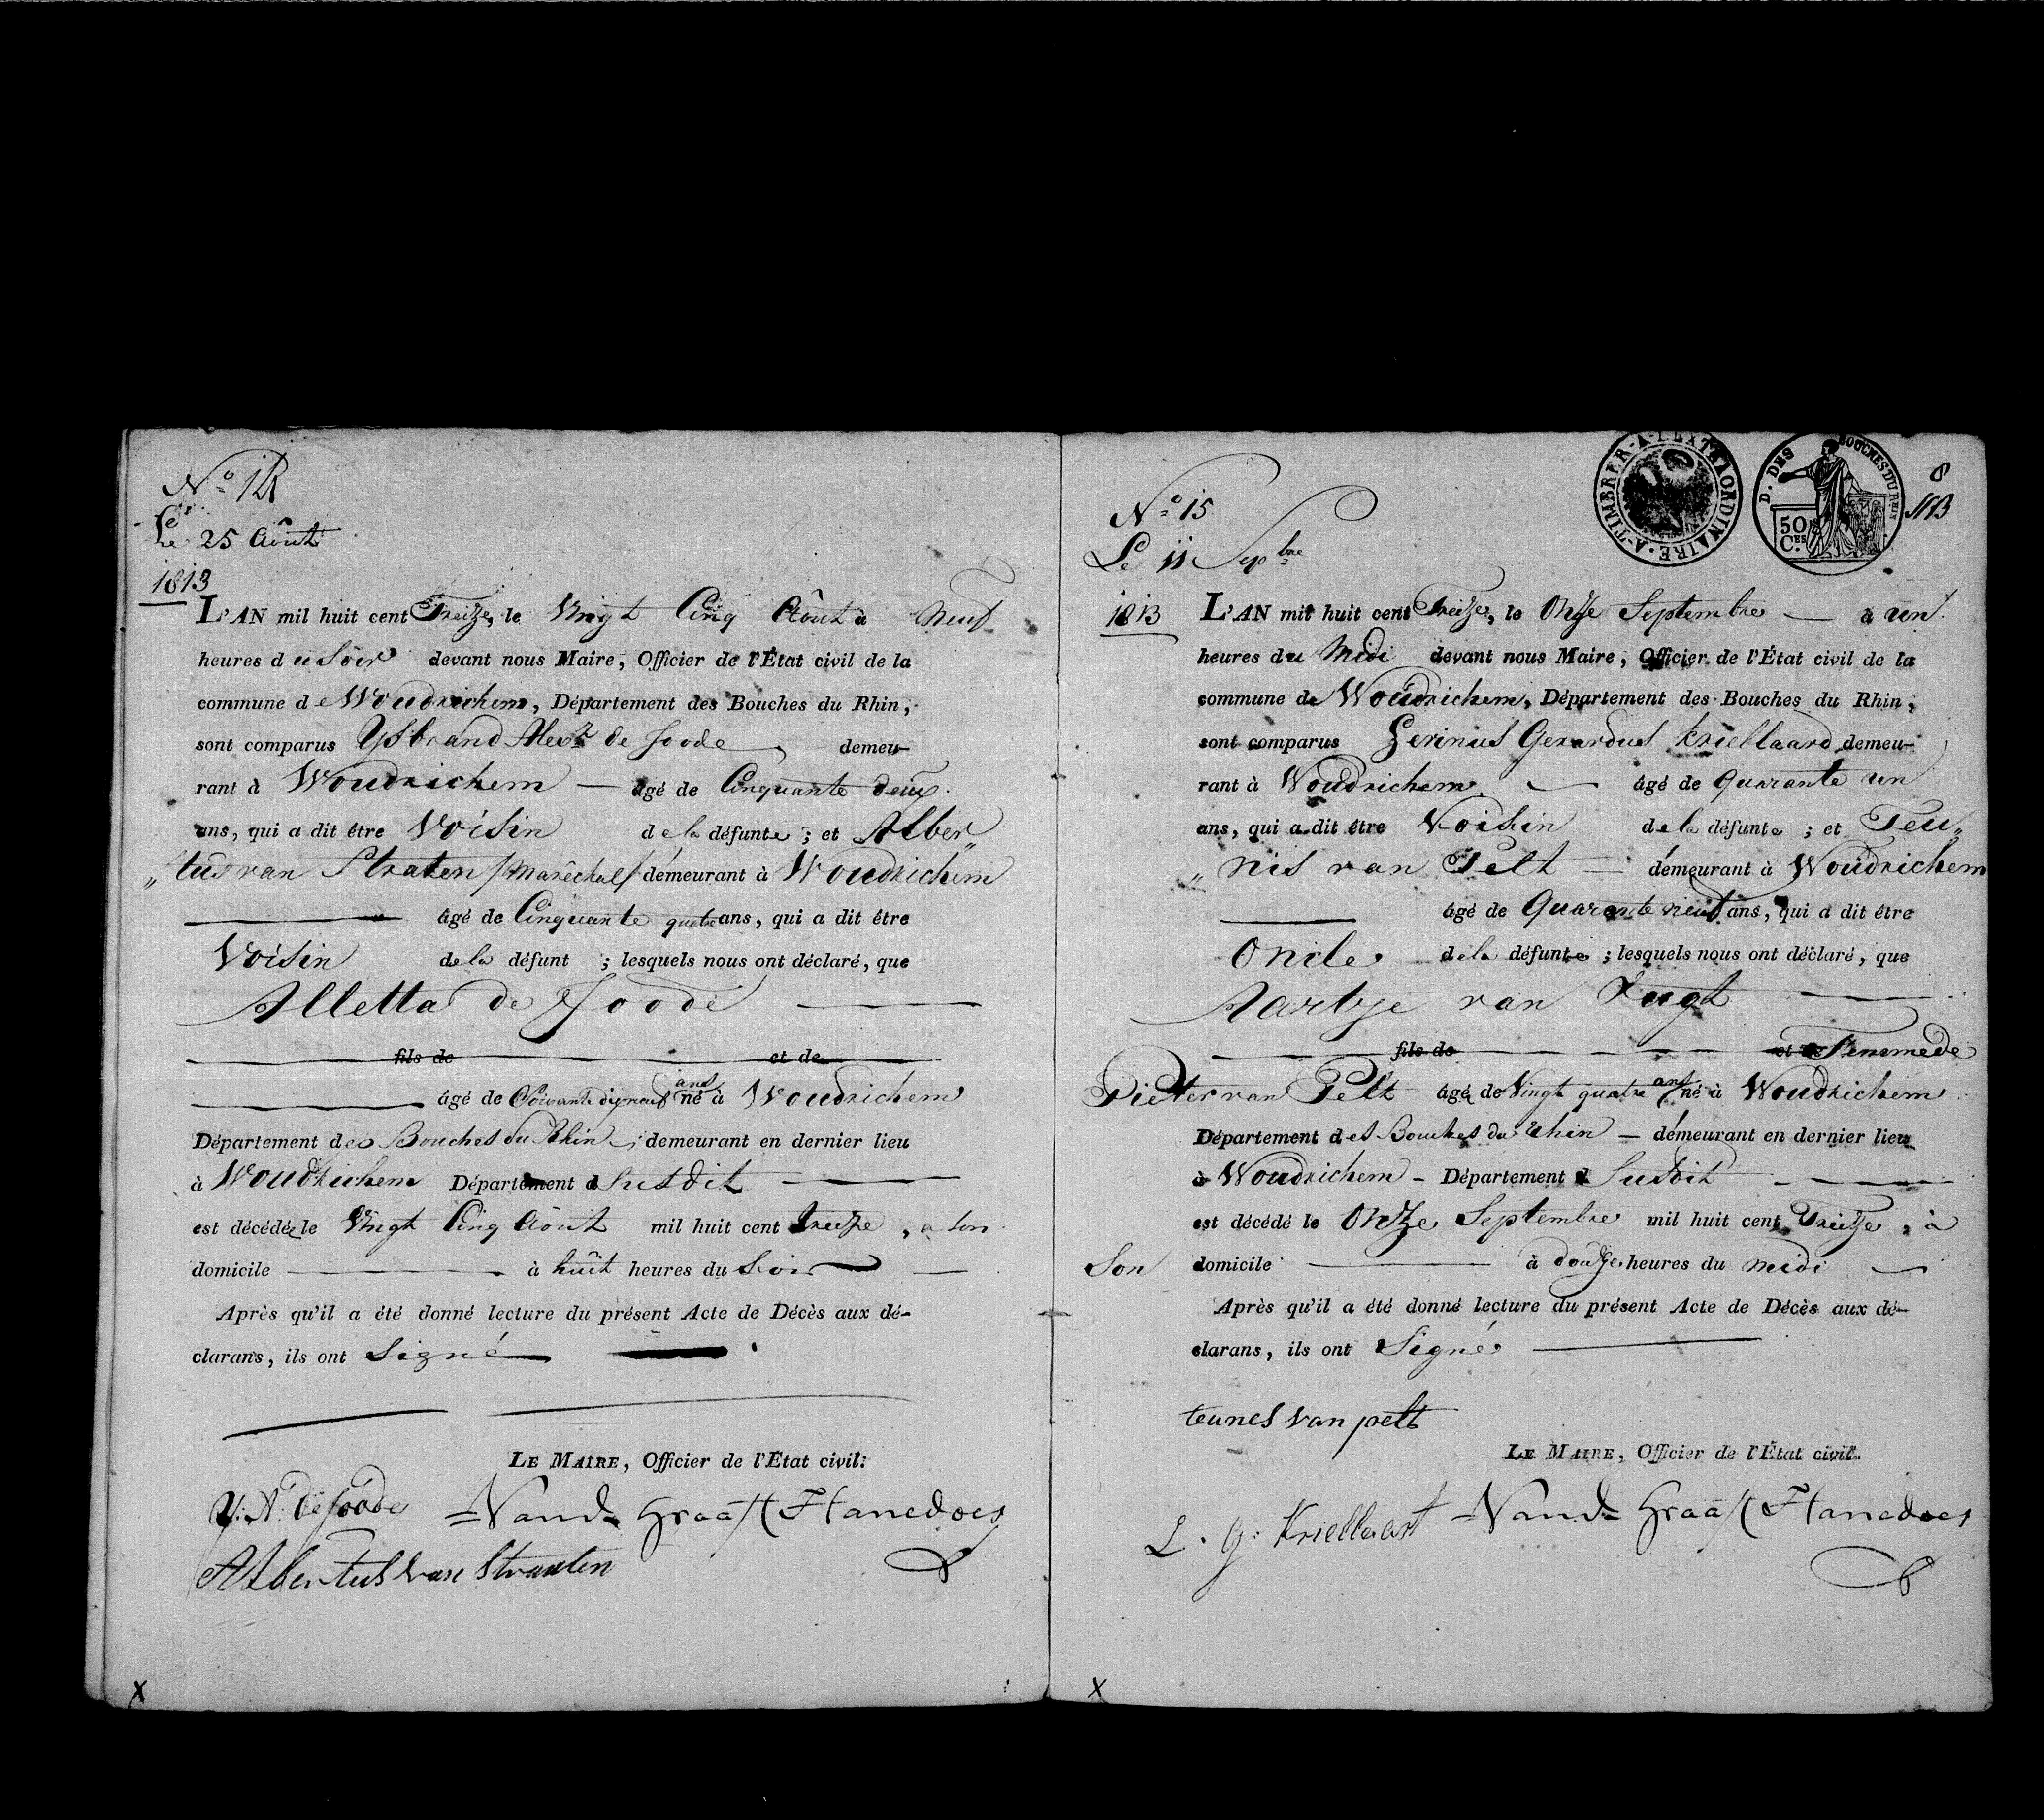 Le 25 Août
1813
L'AN mil huit cent Treize, le Vingt Cinq Août à Neuf
heures du Soir devant nous Maire, Officier de l'État civil de la
commune de Woudrichem, Département des Bouches du Rhin,
sont comparus Ysbrand de Joode demeu-
rant à Woudrichem — âgé de Cinquante deux
ans, qui a dit être Voisin de la défunte ; et Alber„
„tus van Straten /Marêchal/ demeurant à Woudrichem
âgé de Cinquante quatre ans, qui a dit être
Voisin de la défunt ; lesquels nous ont déclaré, que
Alletta de Joode
fils de et de
âgé de Soixante dix neuf ans né à Woudrichem
Département des Bouches du Rhin ; demeurant en dernier lieu
à Woudrichem Département d Susdit
est décédée le Vingt Cinq Août mil huit cent Treize, a son
domicile à huit heures du Soir
Après qu'il a été donné lecture du présent Acte de Décès aux dé-
clarans, ils ont Signé
LE MAIRE, Officier de l'État civil:
Y: A: de Joode Vand Graaff Hanedoes
Albertus van Straaten
x
A-TIMBRER-A-L'EXTRAORDINAIRE
D. DES BOUCHES DU RHIN
50 CES C.
8
No 15
Le 11 Sepbre
1813
L'AN mil huit cent Treize, le Onze Septembre — à un
heures du Midi devant nous Maire, Officier de l'État civil de la
commune de Woudrichem, Département des Bouches du Rhin,
sont comparus Gerardus Kriellaard demeu-
rant à Woudrichem — âgé de Quarante un
ans, qui a dit être Voisin de la défunte ; et Teu„
„nis van Pelt — demeurant à Woudrichem
âgé de Quarante neuf ans, qui a dit être
Oncle de la défunte ; lesquels nous ont déclaré, que
Aartje van Vugt
fils de et de Femme de
Pieter van Pelt âgé de Vingt quatre ans né à Woudrichem
Département des Bouches du Rhin — demeurant en dernier lieu
à Woudrichem - Département d Susdit
est décédé le Onze Septembre mil huit cent Treize, à
Son domicile à douze heures du midi
Après qu'il a été donné lecture du présent Acte de Décès aux dé-
clarans, ils ont Signé
teunes van pelt
LE MAIRE, Officier de l'État civil.
L. G: Kriellaart Vand Graaff Hanedoes
x